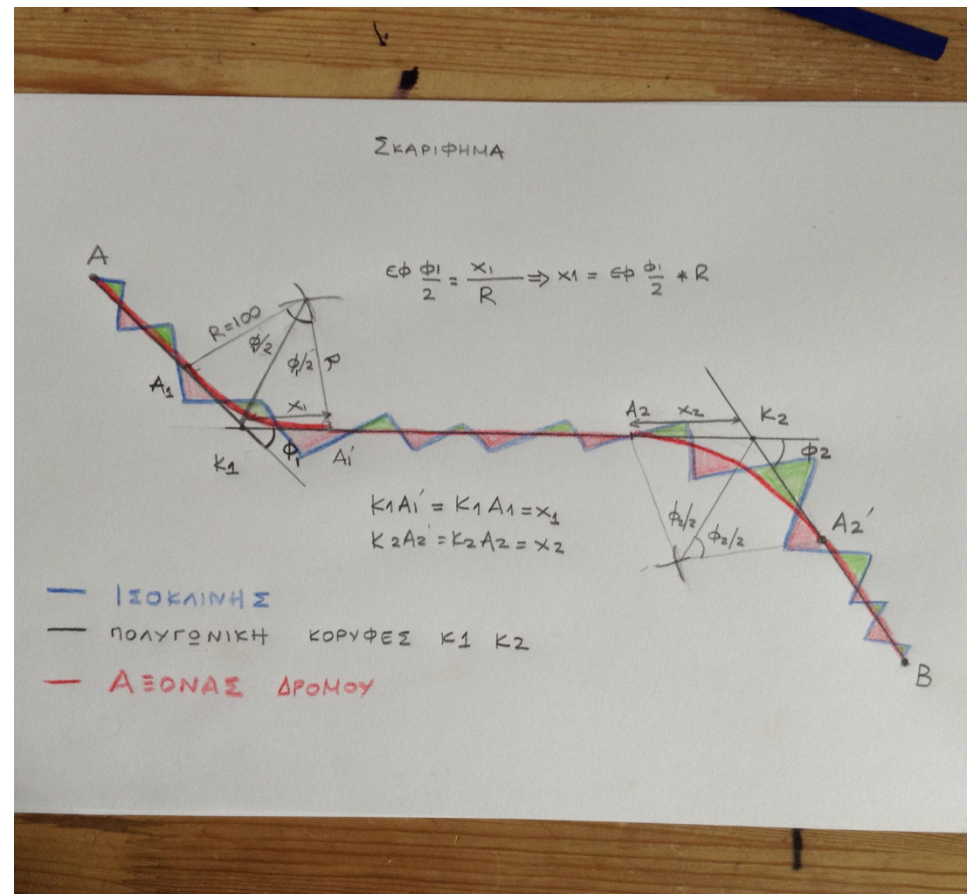 ΣΚΑΡΙΦΗΜΑ
A
εφ φ1/2 = x1/R ⇒ x1 = εφ φ1/2 * R
R=100
φ/2
φ1/2
R
A1
x1
K1
φ1
A1'
A2
x2
K2
φ2
K1A1' = K1A1 = x1
K2A2' = K2A2 = x2
φ2/2
φ2/2
A2'
B
ΙΣΟΚΛΙΝΗΣ
ΠΟΛΥΓΩΝΙΚΗ ΚΟΡΥΦΕΣ K1 K2
ΑΞΟΝΑΣ ΔΡΟΜΟΥ